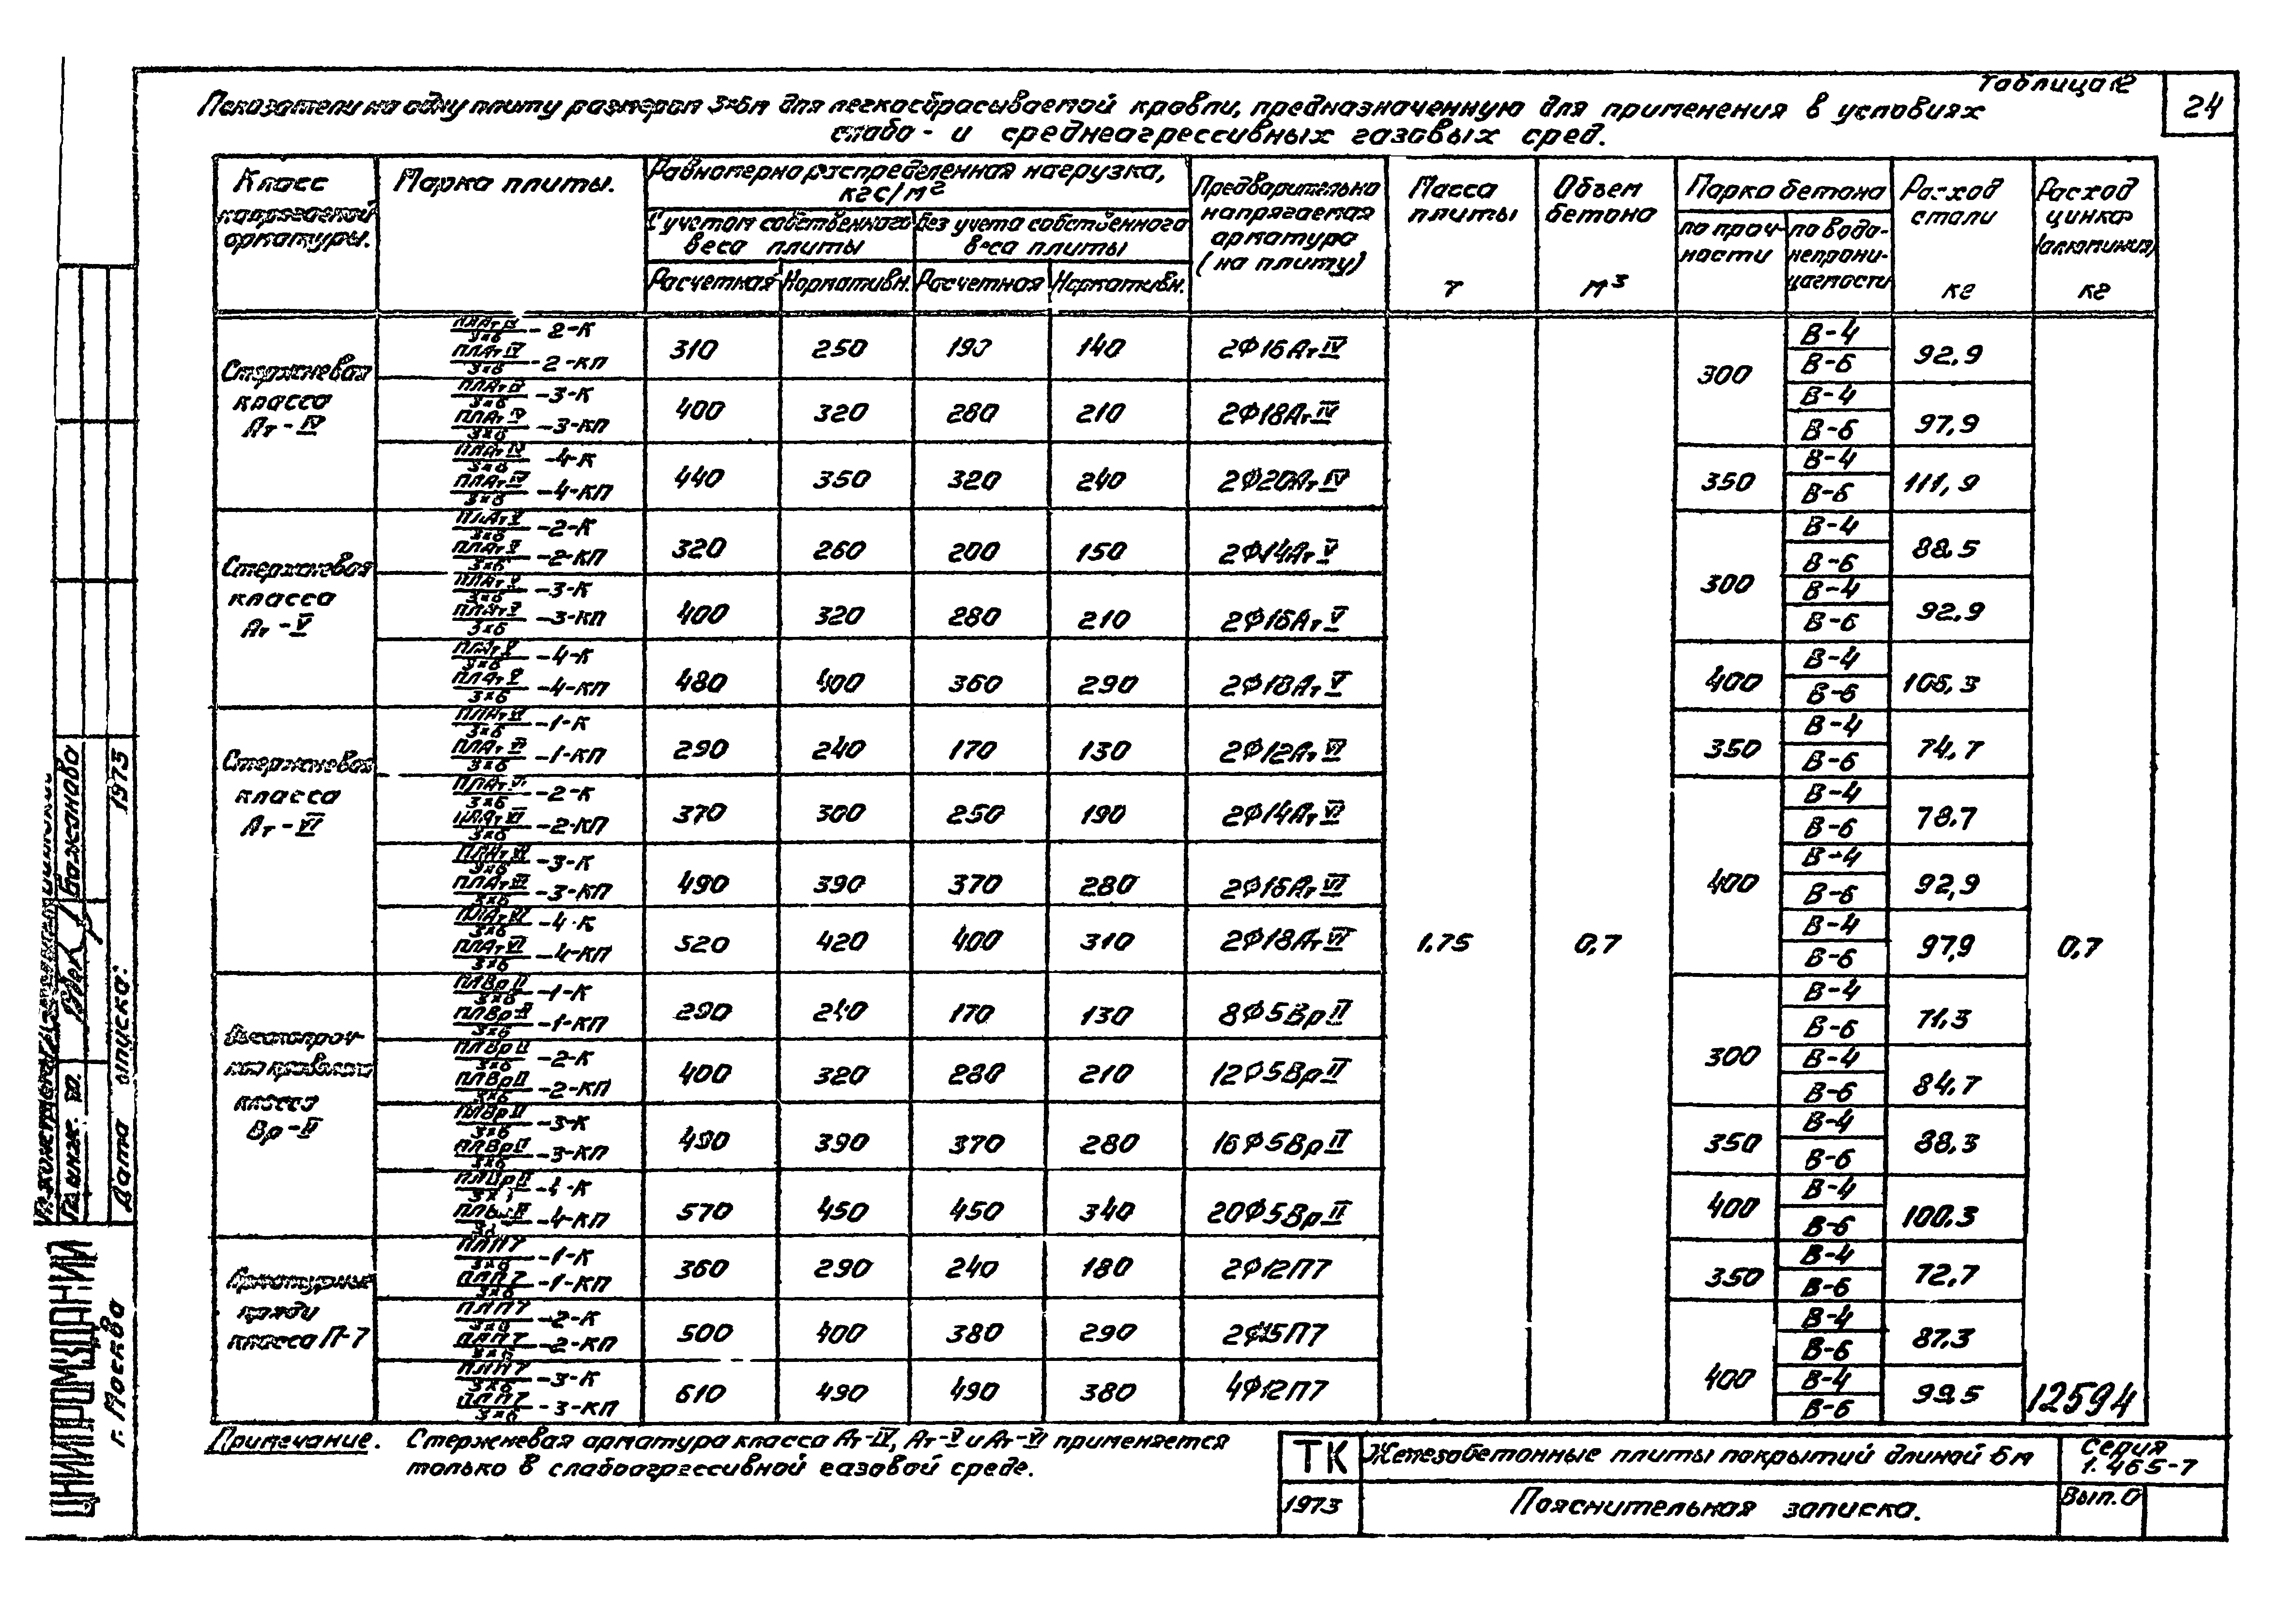 Таблица 12
24
Показатели на одну плиту размером 3×6м для легкосбрасываемой кровли, предназначенную для применения в условиях
слабо- и среднеагрессивных газовых сред.
Класс напрягаемой арматуры.
Марка плиты.
Равномерно распределенная нагрузка, кгс/м²
С учетом собственного веса плиты
Без учета собственного веса плиты
Расчетная Нормативн. Расчетная Нормативн.
Предварительно напрягаемая арматура (на плиту)
Масса плиты т
Объем бетона м³
Марка бетона
по прочности
по водонепроницаемости
Расход стали кг
Расход цинка (алюминия) кг
Стержневая класса Ат-IV
ПЛАтIV/3×6 -2-К
ПЛАтIV/3×6 -2-КП
310 250 190 140 2Ф16АтIV 300 В-4 В-6 92,9
ПЛАтIV/3×6 -3-К
ПЛАтIV/3×6 -3-КП
400 320 280 210 2Ф18АтIV В-4 В-6 97,9
ПЛАтIV/3×6 -4-К
ПЛАтIV/3×6 -4-КП
440 350 320 240 2Ф20АтIV 350 В-4 В-6 111,9
Стержневая класса Ат-V
ПЛАтV/3×6 -2-К
ПЛАтV/3×6 -2-КП
320 260 200 150 2Ф14АтV 300 В-4 В-6 88.5
ПЛАтV/3×6 -3-К
ПЛАтV/3×6 -3-КП
400 320 280 210 2Ф16АтV В-4 В-6 92.9
ПЛАтV/3×6 -4-К
ПЛАтV/3×6 -4-КП
480 400 360 290 2Ф18АтV 400 В-4 В-6 106,3
Стержневая класса Ат-VI
ПЛАтVI/3×6 -1-К
ПЛАтVI/3×6 -1-КП
290 240 170 130 2Ф12АтVI 350 В-4 В-6 74,7
ПЛАтVI/3×6 -2-К
ПЛАтVI/3×6 -2-КП
370 300 250 190 2Ф14АтVI 400 В-4 В-6 78.7
ПЛАтVI/3×6 -3-К
ПЛАтVI/3×6 -3-КП
490 390 370 280 2Ф16АтVI В-4 В-6 92,9
ПЛАтVI/3×6 -4-К
ПЛАтVI/3×6 -4-КП
520 420 400 310 2Ф18АтVI 1.75 0,7 В-4 В-6 97,9 0,7
Высокопрочная проволока класса Вр-II
ПЛВрII/3×6 -1-К
ПЛВрII/3×6 -1-КП
290 240 170 130 8Ф5ВрII 300 В-4 В-6 71,3
ПЛВрII/3×6 -2-К
ПЛВрII/3×6 -2-КП
400 320 280 210 12Ф5ВрII В-4 В-6 84,7
ПЛВрII/3×6 -3-К
ПЛВрII/3×6 -3-КП
490 390 370 280 16Ф5ВрII 350 В-4 В-6 88,3
ПЛВрII/3×6 -4-К
ПЛВрII/3×6 -4-КП
570 450 450 340 20Ф5ВрII 400 В-4 В-6 100.3
Арматурные пряди класса П-7
ПЛП7/3×6 -1-К
ПЛП7/3×6 -1-КП
360 290 240 180 2Ф12П7 350 В-4 В-6 72,7
ПЛП7/3×6 -2-К
ПЛП7/3×6 -2-КП
500 400 380 290 2Ф15П7 400 В-4 В-6 87,3
ПЛП7/3×6 -3-К
ПЛП7/3×6 -3-КП
610 490 490 380 4Ф12П7 В-4 В-6 99,5
12594
Примечание. Стержневая арматура класса Ат-IV, Ат-V и Ат-VI применяется
только в слабоагрессивной газовой среде.
ТК Железобетонные плиты покрытий длиной 6м Серия 1.465-7
1973 Пояснительная записка. Вып.0
ЦНИИПРОМЗДАНИЙ
г. Москва
Дата выпуска: 1973
Гл. инж. пр. Божанова